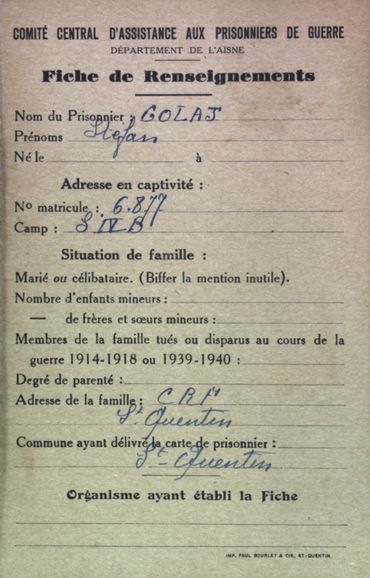 COMITÉ CENTRAL D'ASSISTANCE AUX PRISONNIERS DE GUERRE
DÉPARTEMENT DE L'AISNE
Fiche de Renseignements
Nom du Prisonnier : GOLAS
Prénoms Stefan
Né le à
Adresse en captivité :
No matricule : 6.877
Camp : S IV B
Situation de famille :
Marié ou célibataire. (Biffer la mention inutile).
Nombre d'enfants mineurs :
— de frères et sœurs mineurs :
Membres de la famille tués ou disparus au cours de la
guerre 1914-1918 ou 1939-1940 :
Degré de parenté :
Adresse de la famille : C R F
St Quentin
Commune ayant délivré la carte de prisonnier :
St-Quentin
Organisme ayant établi la Fiche
IMP. PAUL BOURLET & CIE, ST-QUENTIN